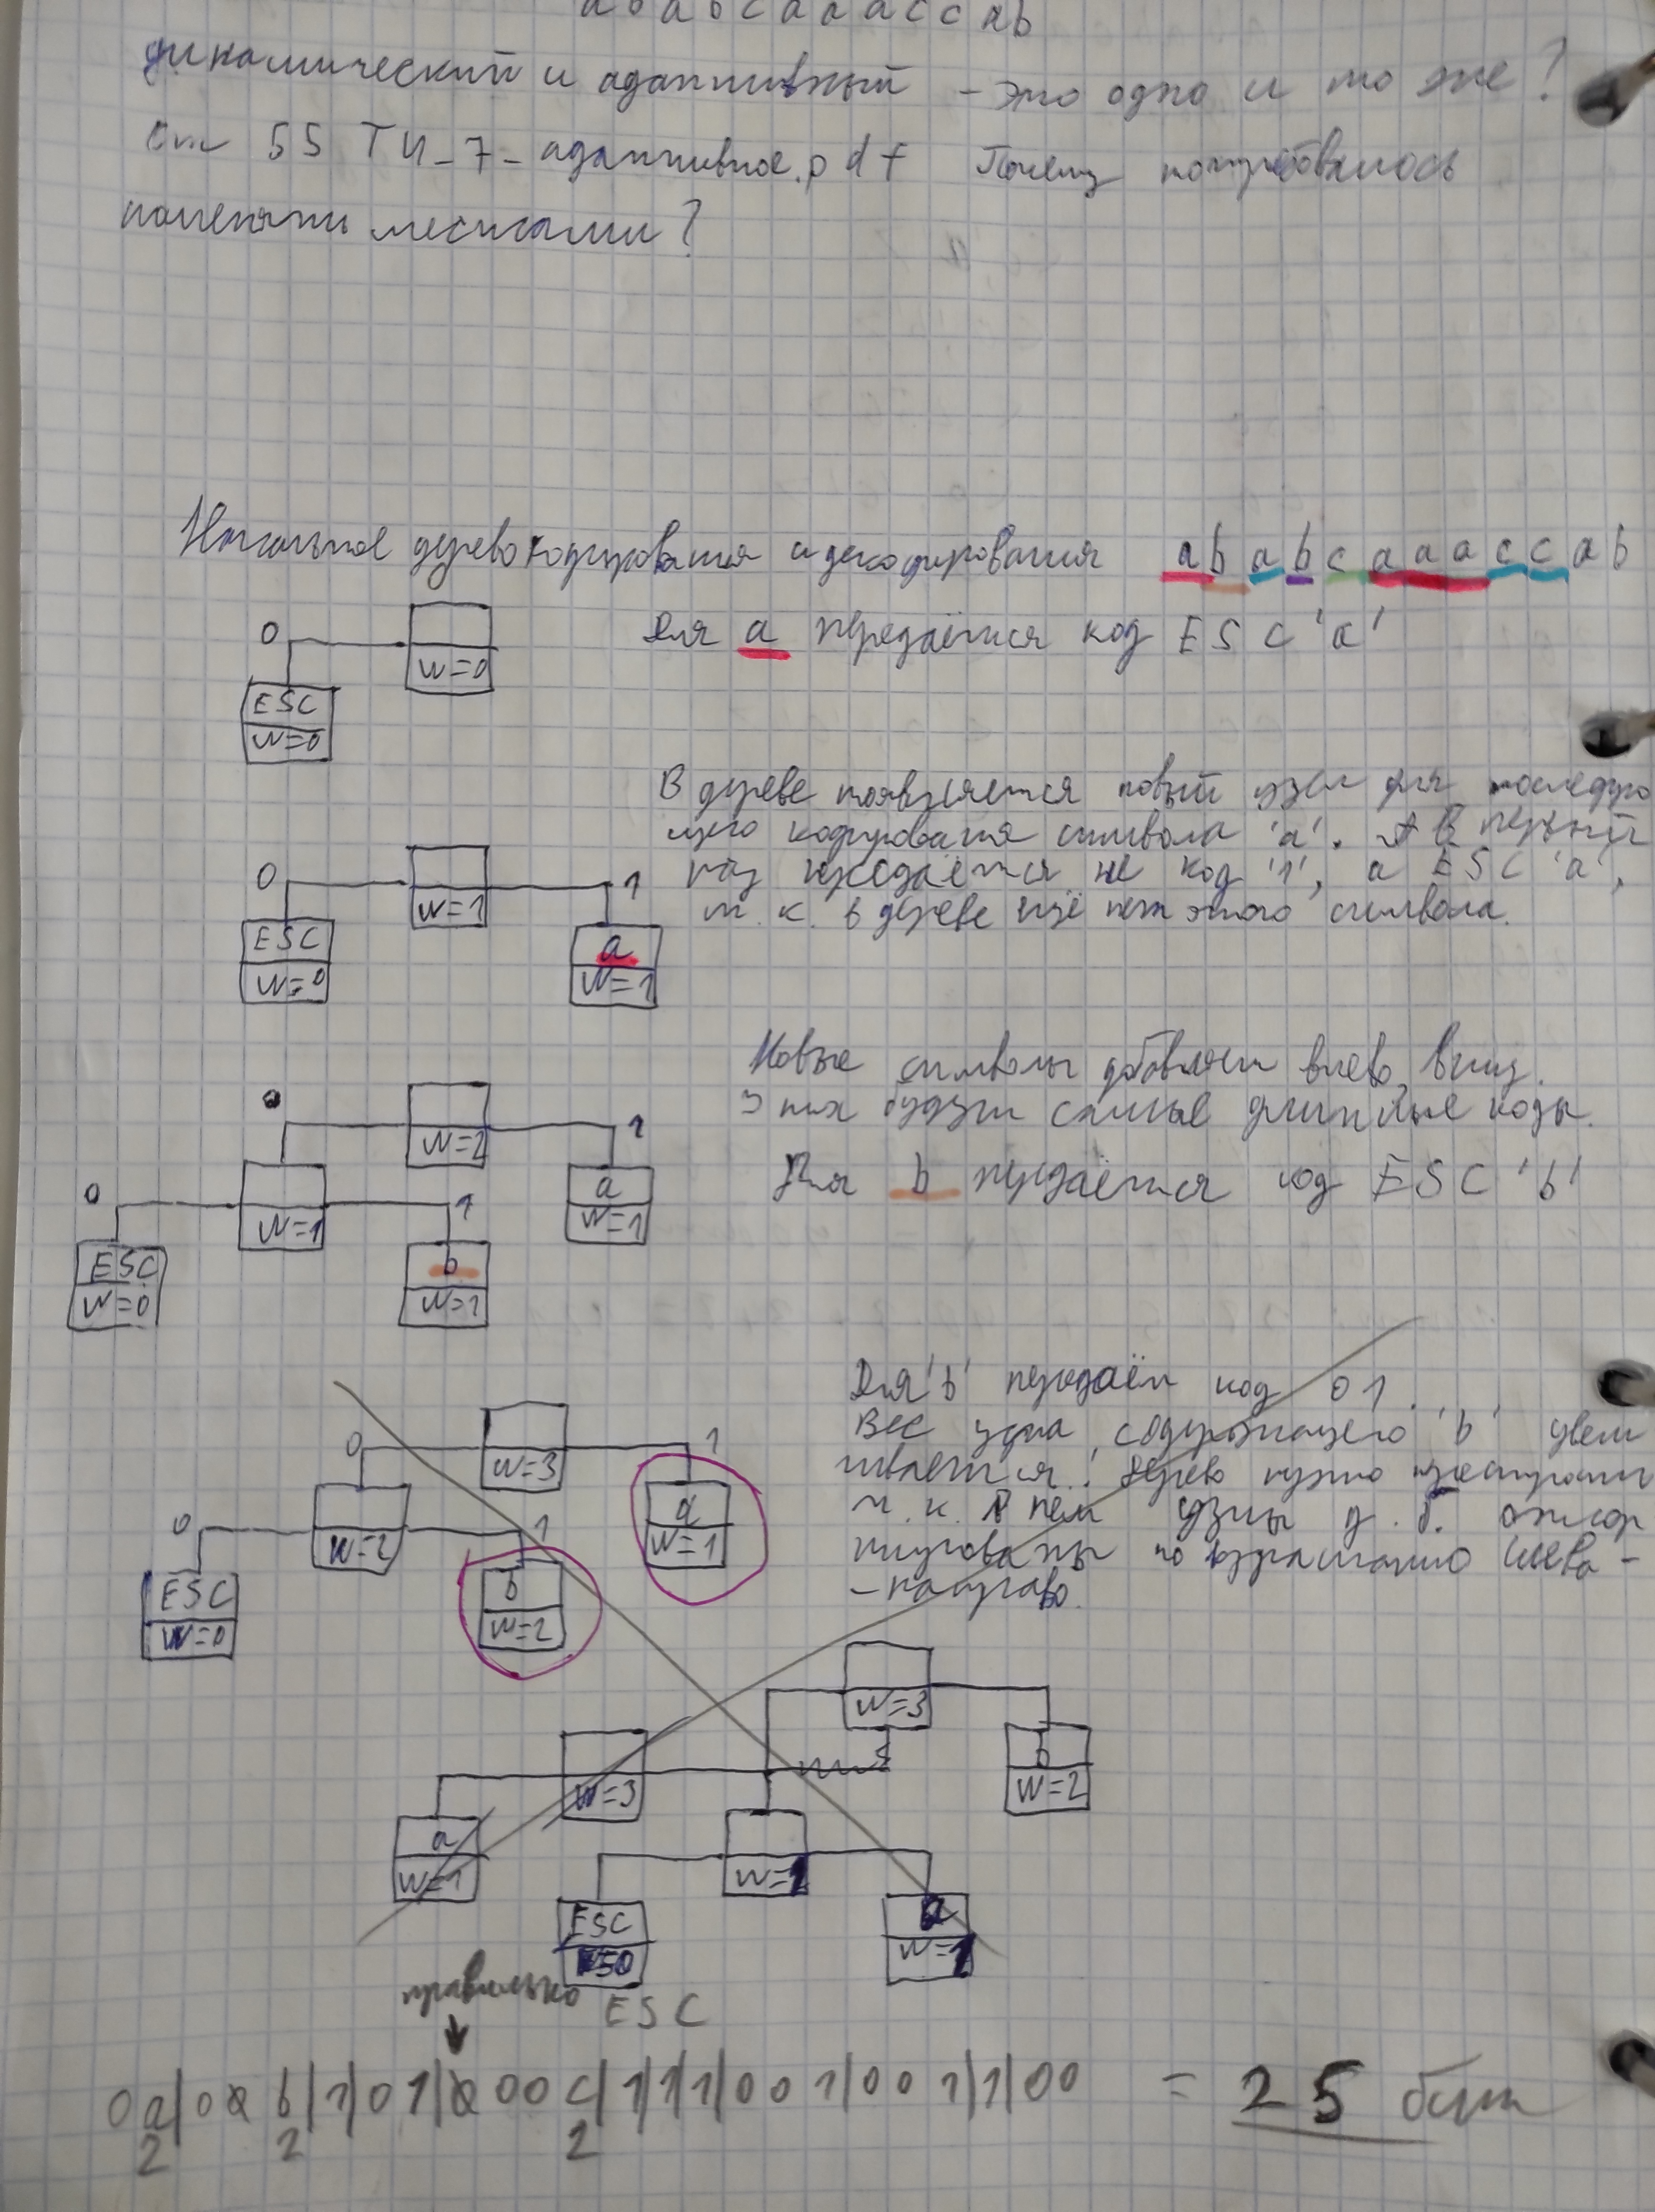 a b a b c a a a c c a b
динамический и адаптивный – это одно и то же?
Стр 55 ТИ_7_адаптивное.pdf Почему потребовалось
поменять местами?
Начальное дерево кодирования и декодирования a b a b c a a a c c a b
0
W=0
ESC
W=0
Для a передаётся код ESC 'a'
В дереве появляется новый узел для последую
щего кодирования символа 'a'. В первый
раз передаётся не код '1', а ESC 'a',
т.к. в дереве ещё нет этого символа.
0
W=1
1
ESC
W=0
a
W=1
Новые символы добавляем влево, вниз.
У них будут самые длинные коды.
Для b передаётся код ESC 'b'
W=2
1
0
W=1
1
a
W=1
ESC
W=0
b
W=1
Для 'b' передаём код 01.
Вес узла, содержащего 'b' увели
чивается. Дерево нужно перестроить
т.к. в нем узлы д.б. отсор
тированы по возрастанию слева-
-направо.
0
W=3
1
0
W=2
1
a
W=1
ESC
W=0
b
W=2
W=3
W=3
b
W=2
a
W=1
W=1
ESC
a
W=1
правильно ESC
0a|0 b|1|01| 00c|1|1|1|001|001|1|00 = 25 бит
2 2 2